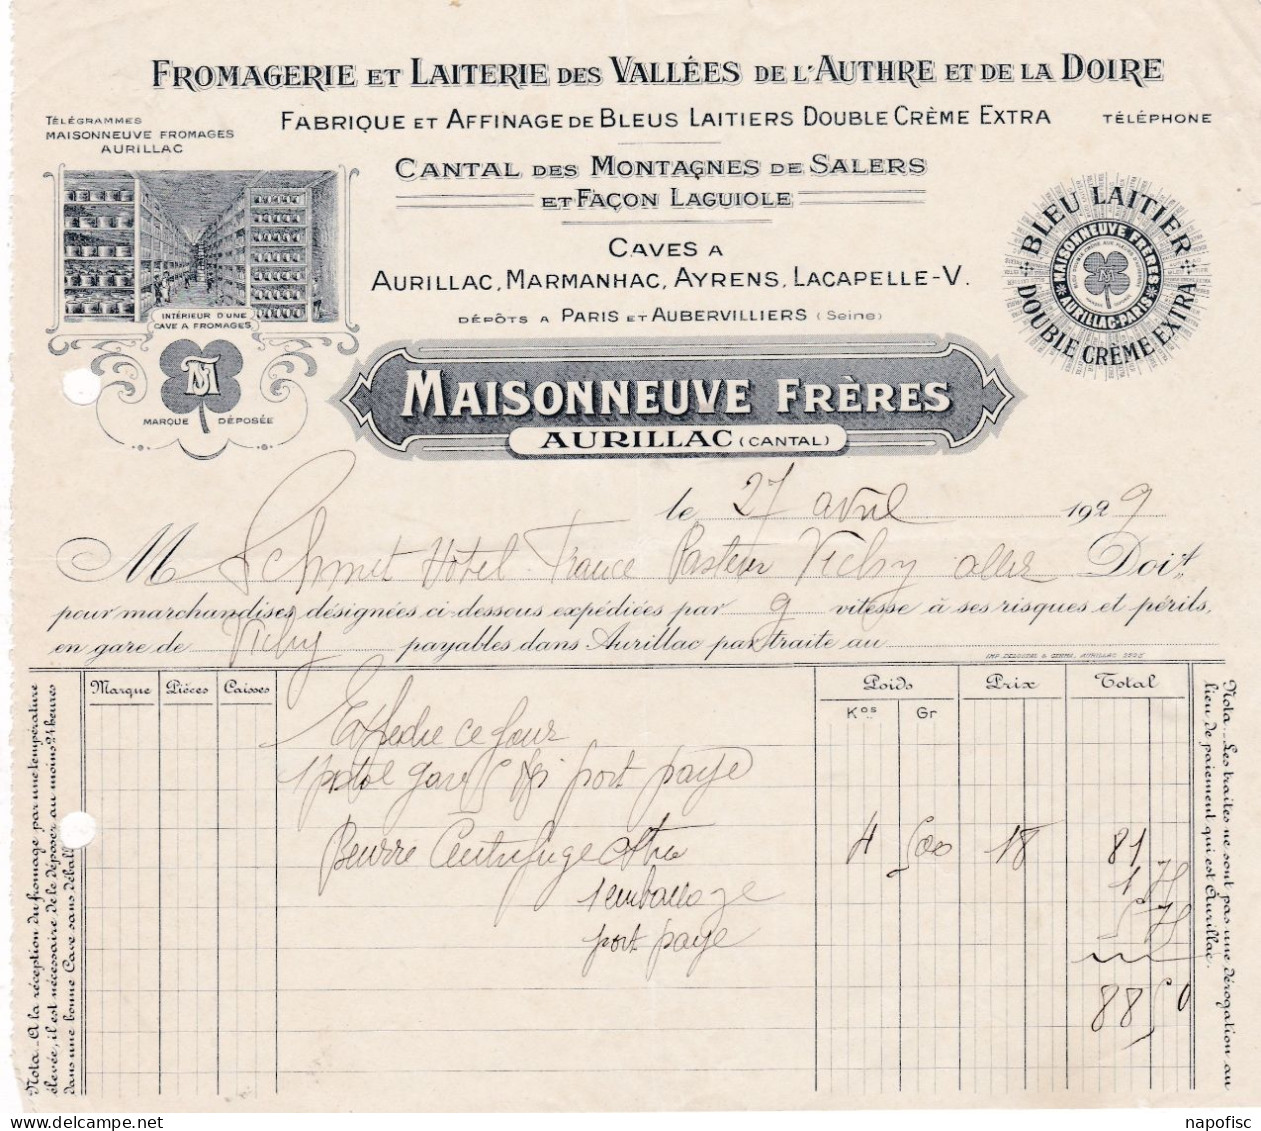 FROMAGERIE ET LAITERIE DES VALLÉES DE L'AUTHRE ET DE LA DOIRE
TÉLÉGRAMMES
MAISONNEUVE FROMAGES
AURILLAC
FABRIQUE ET AFFINAGE DE BLEUS LAITIERS DOUBLE CRÈME EXTRA
TÉLÉPHONE
CANTAL DES MONTAGNES DE SALERS
ET FAÇON LAGUIOLE
CAVES A
AURILLAC, MARMANHAC, AYRENS, LACAPELLE-V.
DÉPÔTS A PARIS ET AUBERVILLIERS (Seine)
INTÉRIEUR D'UNE
CAVE A FROMAGES
MF
MARQUE DÉPOSÉE
BLEU LAITIER
DOUBLE CRÈME EXTRA
MAISONNEUVE FRÈRES
AURILLAC-PARIS
MAISONNEUVE FRÈRES
AURILLAC (CANTAL)
le 27 avril 1929
M Schmet Hôtel France Pasteur Vichy allier Doit
pour marchandises désignées ci-dessous expédiées par g vitesse à ses risques et périls,
en gare de Vichy payables dans Aurillac par traite au
Marque Pièces Caisses Poids Prix Total
Kos Gr
Expédié ce jour
1 postal gare port payé
Beurre Centrifuge extra 4 500 18 81
1 emballage 1 75
port payé 5 75
88 50
Nota _ A la réception du fromage par une température
élevée, il est nécessaire de le déposer au moins 24 heures
dans une bonne Cave sans déball
Nota _ Les traites ne sont pas une dérogation au
lieu de paiement qui est Aurillac.
napofisc